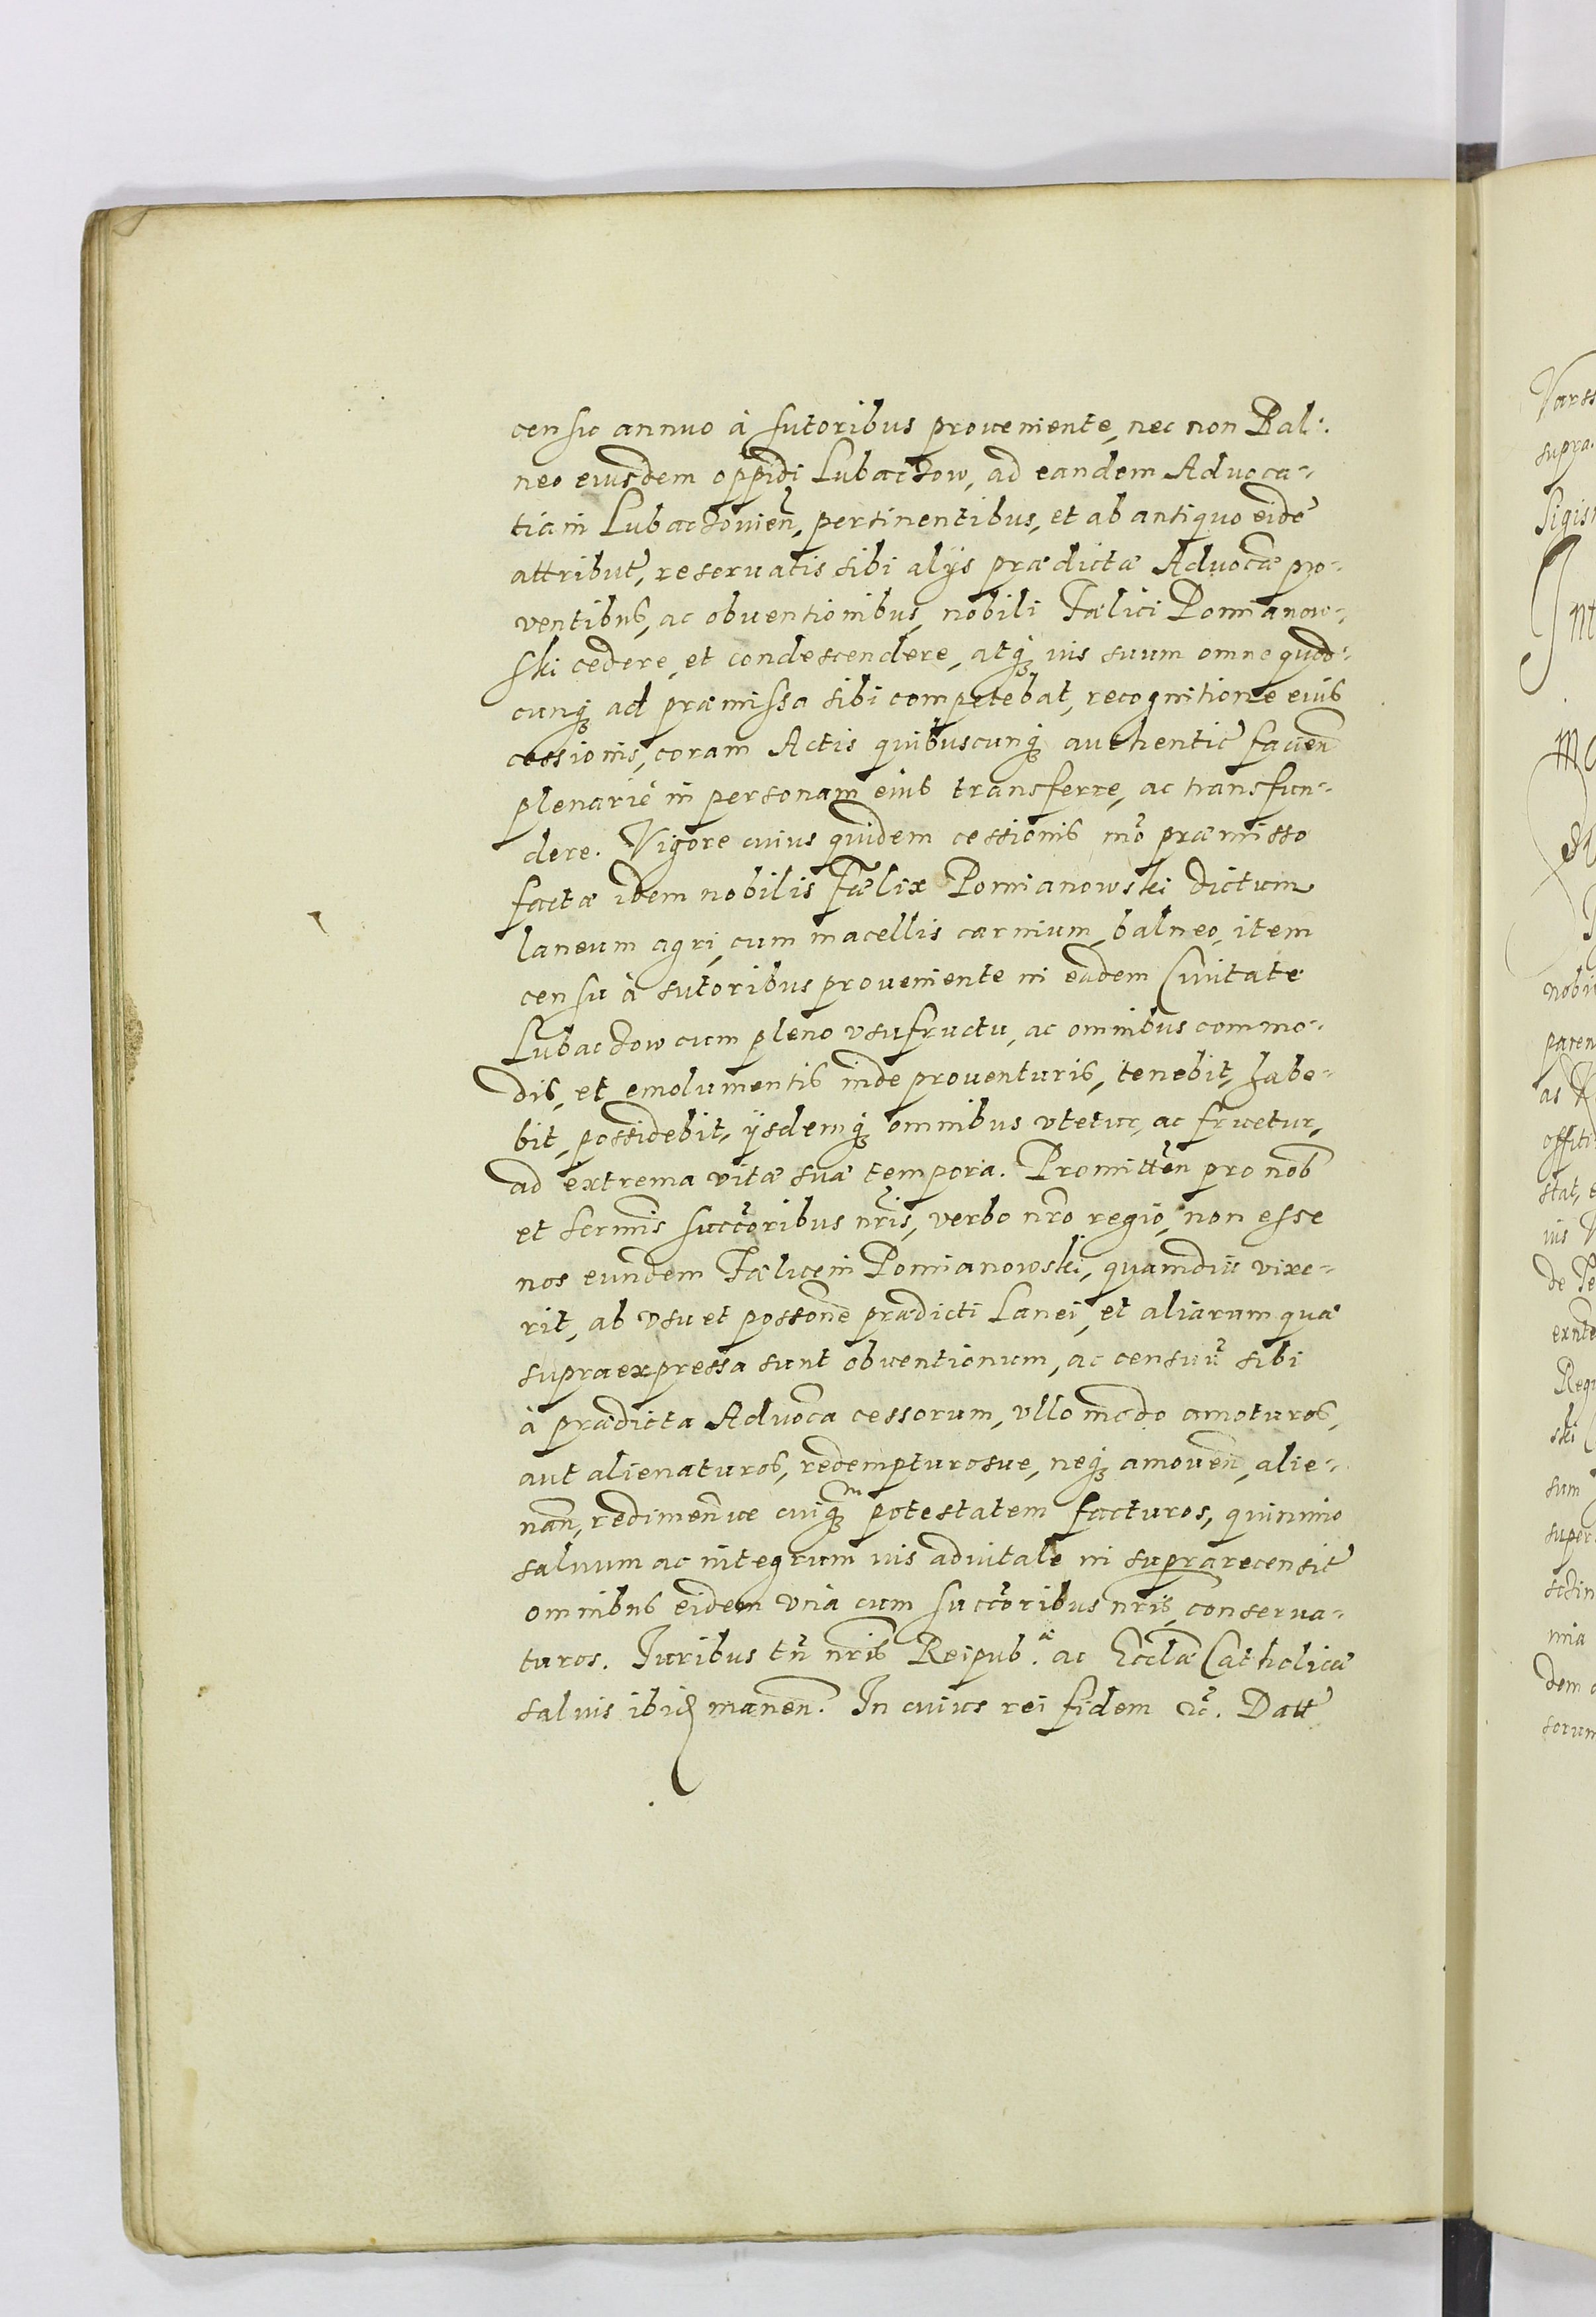 censu annuo à sutoribus proueniente, nec non Bal-
neo eiusdem oppidi Lubachow, ad eandem Aduoca-
tiam Lubachouien̄, pertinentibus, et ab antiquo eidē
attribut̄, reseruatis sibi alijs prædictæ Aduocāe pro-
ventibus, ac obuentionibus, nobili Fælici Pomianow-
ski cedere, et condescendere, atq₃ ius suum omne quod-
cunq₃ ad præmissa sibi competebat, recognitione eius
cessionis, coram Actis quibuscunq₃ authentic̄ faciēn
plenariè in personam eius transferre, ac transfun-
dere. Vigore cuius quidem cessionis mō præmisso
factæ idem nobilis Fælix Pomianowski dictum
laneum agri, cum macellis carnium, balneo, item
censu à sutoribus proueniente in eadem Ciuitate
Lubachow cum pleno vsufructu, ac omnibus commo-
dis, et emolumentis inde prouenturis, tenebit, habe-
bit, possidebit, ijsdemq₃ omnibus vtetur, ac fruetur,
ad extrema vitæ suæ tempora. Promittēn pro nob̄
et sermīs succ̄oribus nr̄is, verbo nr̄o regio, non esse
nos eundem Fælicem Pomianowski, quamdiu vixe-
rit, ab vsu et possōne prædicti Lanei, et aliarum quæ
supraexpressa sunt obuentionum, ac censuū sibi
à prædicta Aduocā cessorum, vllo modo amoturos,
aut alienaturos, redempturosue, neq₃ amouēn, alie-
nān, redimēnue cuiq₃m potestatem facturos, quinimo
saluum ac integrum ius aduitale in suprarecensit̄
omnibus eidem vnà cum succ̄oribus nr̄is, conserua-
turos. Iuribus tn̄ nr̄is Reipub.æ ac Eccl̄æ Catholicæ
saluis ibid manēn. In cuius rei fidem &c̄. Datt̄